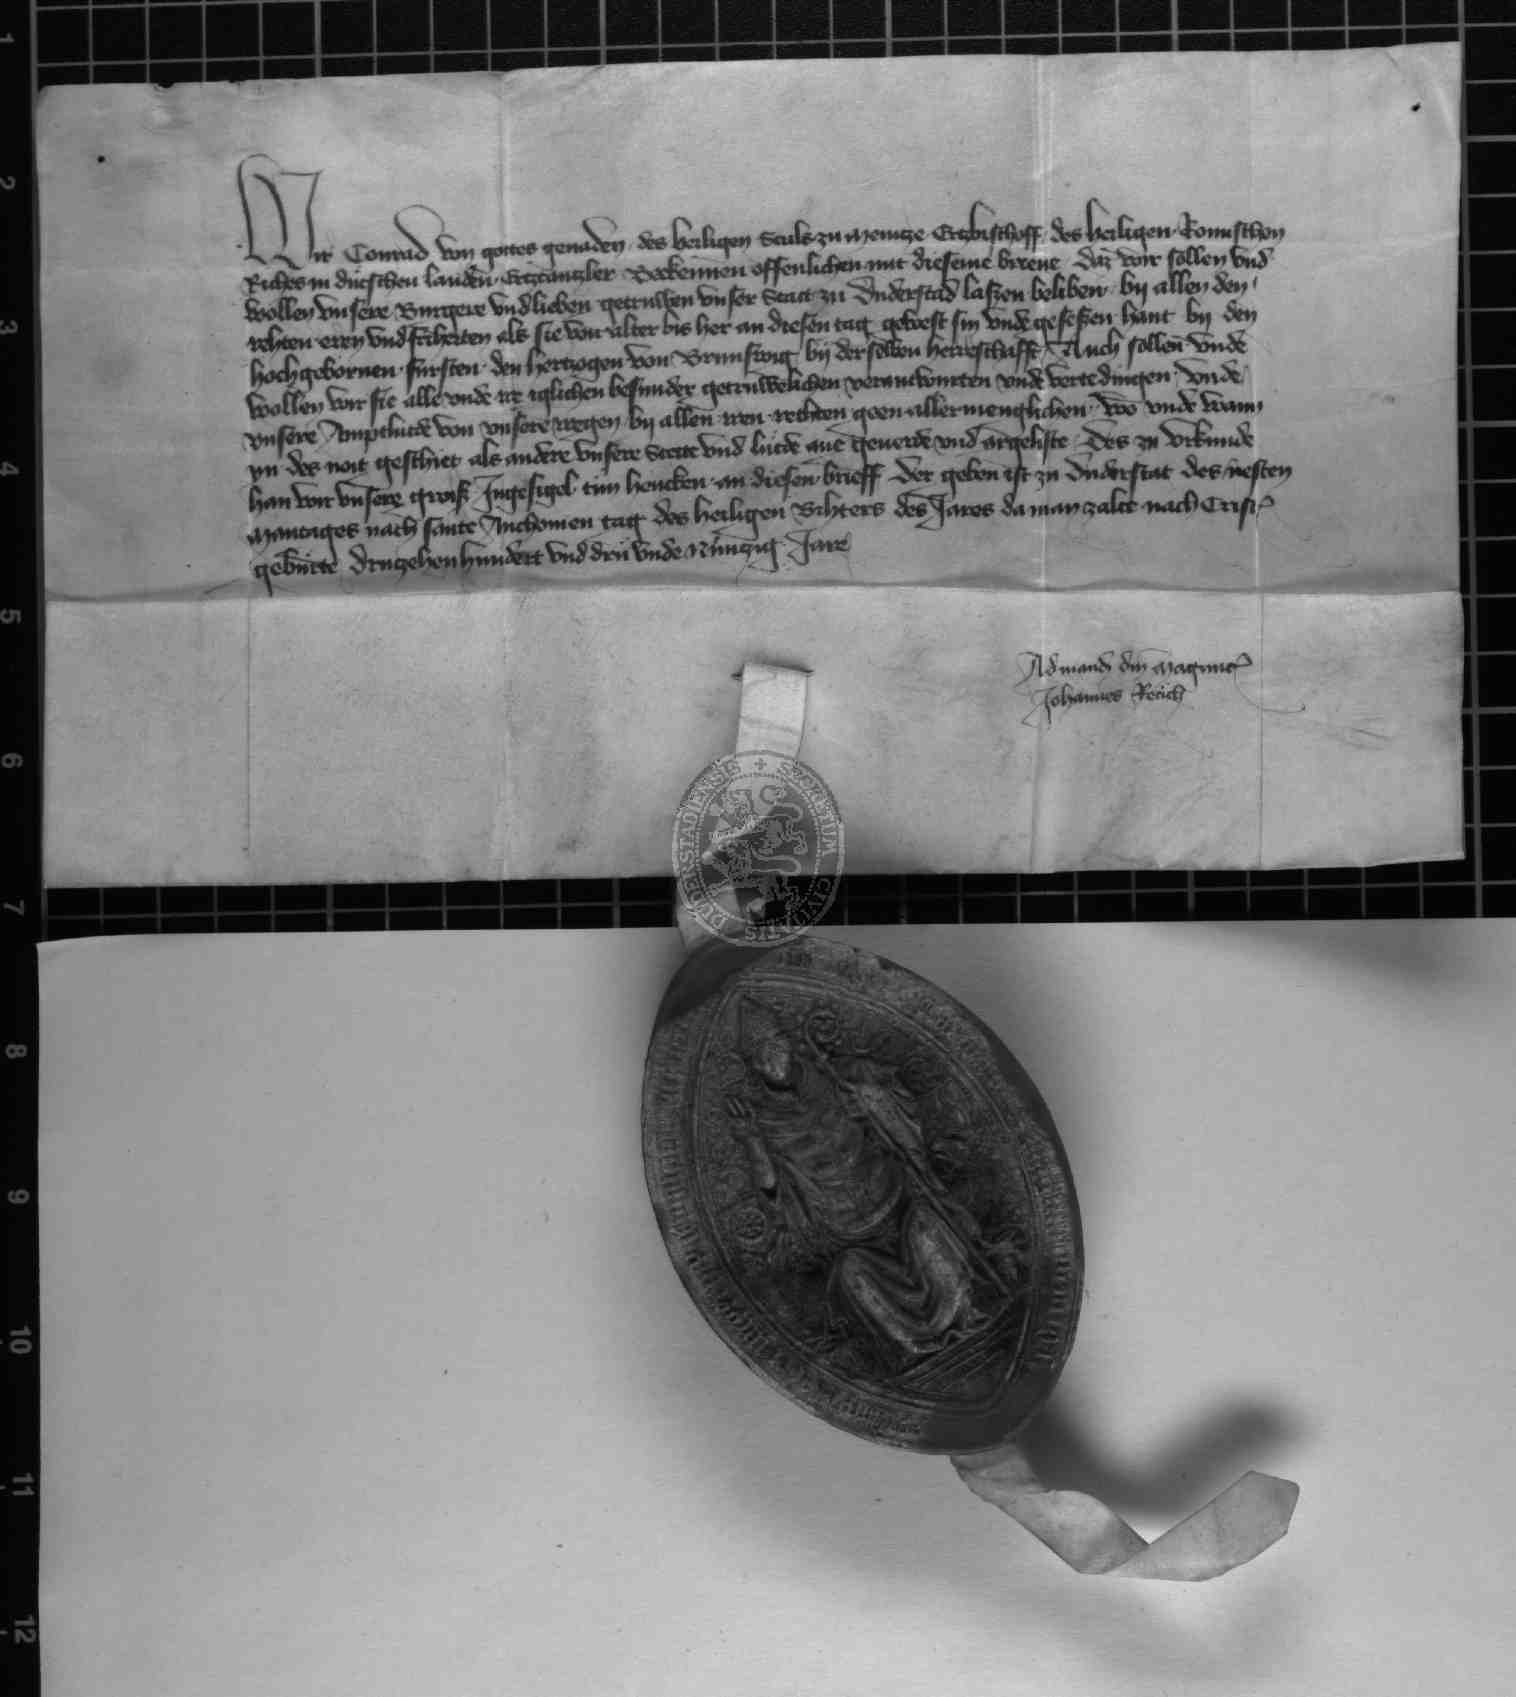 Wir Conrad von gottes genaden des heiligen Stuls zu Mentze Ertzbischoff des heiligen Romischen
Riches in dutschen landen Ertzcantzler Beckennen offenlichen mit dieseme brieue daz wir sollen und
wollen unsere Burgere und lieben getruwen unser Stat zu Duderstad laszen beliben by allen den
rehten eren und friheiten als sie von alter bis her an diesen tag gewest sin unde geseszen hant by den
hochgebornen fursten den hertzogen von Brunswig by der selben herreschafft Auch sollen unde
wollen wir sie alle unde ir iglichen besunder getruwelichen verantwurten unde vertedingen unde
unsere Amptlude von unsere wegen by allen iren rechten geen allermenglichen wo unde wann
yn des noit geschiet als andere unsere Stette und lude ane geuerde und argeliste Des zu Urkunde
han wir unsere grosz Ingesigel tun hencken an diesen brieff Der geben ist zu Duderstat des nesten
Mantages nach sante Anthonien tag des heiligen Bihters des Jares da man zalte nach Cristi
geburte Druzehenhundert und dru unde Nuntzig Jare
Ad mand dni Magunt
Johannes Reich
SECRETUM CIVITATIS DUDERSTADIENSIS
1
2
3
4
5
6
7
8
9
10
11
12